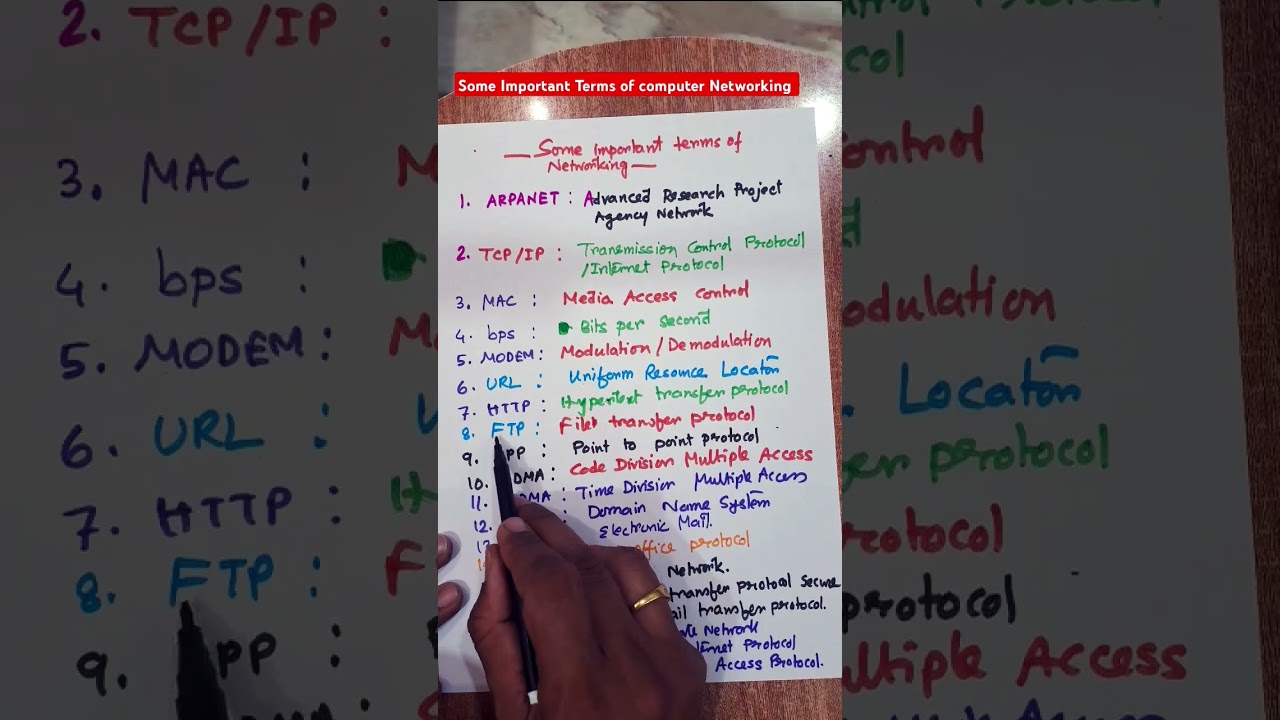 Some Important Terms of computer Networking
Some important terms of
Networking
1. ARPANET : Advanced Research Project
Agency Network
2. TCP/IP : Transmission Control Protocol
/Internet Protocol
3. MAC : Media Access Control
4. bps : Bits per second
5. MODEM : Modulation / Demodulation
6. URL : Uniform Resource Locator
7. HTTP : Hypertext transfer protocol
8. FTP : File transfer protocol
9. PP : Point to point protocol
10. DMA : Code Division Multiple Access
11. DMA : Time Division Multiple Access
12. : Domain Name System
Electronic Mail.
office protocol
Network.
transfer protocol secure
ail transfer protocol.
Network
Protocol
Access Protocol.
2. TCP/IP :
3. MAC :
4. bps
5. MODEM :
6. URL :
7. HTTP :
8. FTP :
9. PP :
ontrol
odulation
Locator
protocol
rotocol
ultiple Access